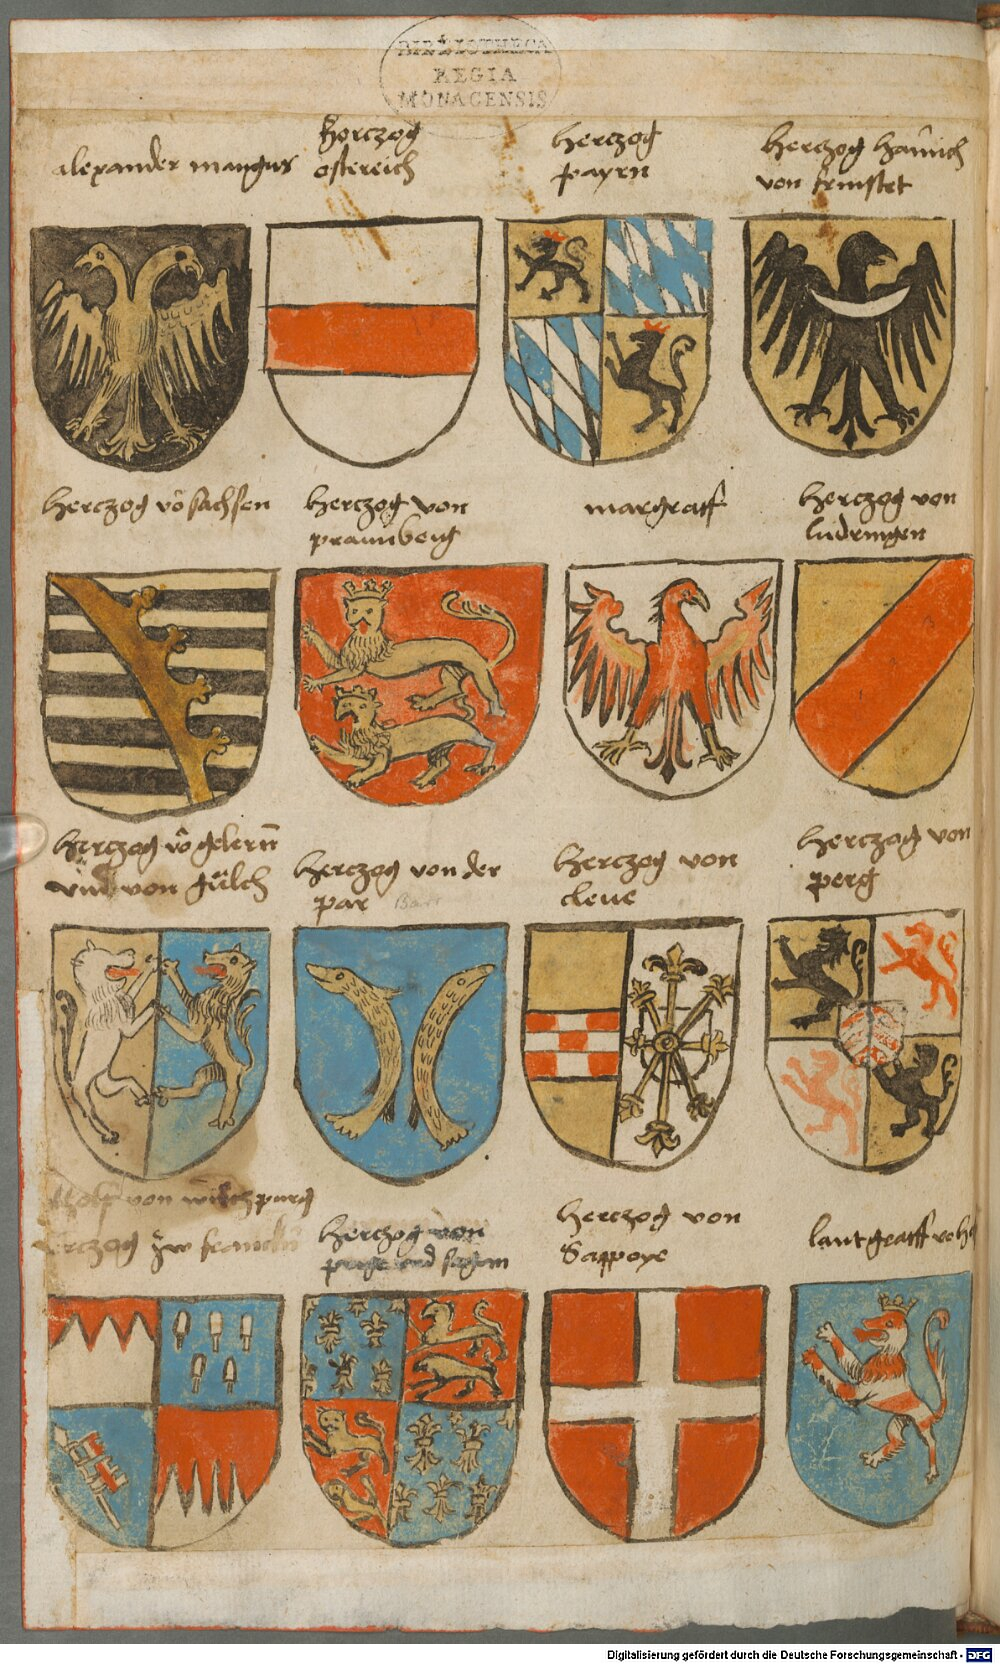 BIBLIOTHECA
REGIA
MONACENSIS
alexander mangnus
Herczog
ostereich
herczog
payrn
herczog hainrich
von
herczog võ sachsen
herczog von
praunbeng
margraff
herczog von
ludringen
herczog võ gelernn
vnd von gülch
herczog von der
par Barr
herczog von
cleue
herczog von
perg
von wirtzpurg
herczog zw franckn
herczog von
vnd
herczog von
Sappoye
lantgraff vo he
Digitalisierung gefördert durch die Deutsche Forschungsgemeinschaft - DFG